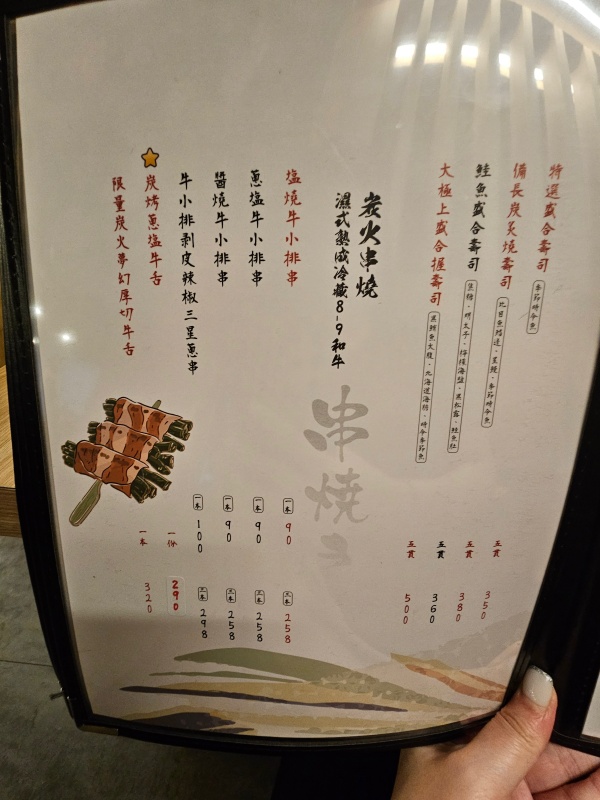 特選盛合壽司 季節時令魚 五貫 350
備長炭炙燒壽司 比目魚鰭邊、星鰻、季節時令魚 五貫 380
鮭魚盛合壽司 焦糖、明太子、檸檬海鹽、黑松露、鮭魚肚 五貫 360
大極上盛合握壽司 黑鮪魚大腹、北海道海膽、時令季節魚 五貫 500
炭火串燒
濕式熟成冷藏8-9和牛
串燒き
塩燒牛小排串 一本 90 三本 258
蔥塩牛小排串 一本 90 三本 258
醬燒牛小排串 一本 90 三本 258
牛小排剝皮辣椒三星蔥串 一本 100 三本 298
炭烤蔥塩牛舌 一份 290
限量炭火夢幻厚切牛舌 一本 320